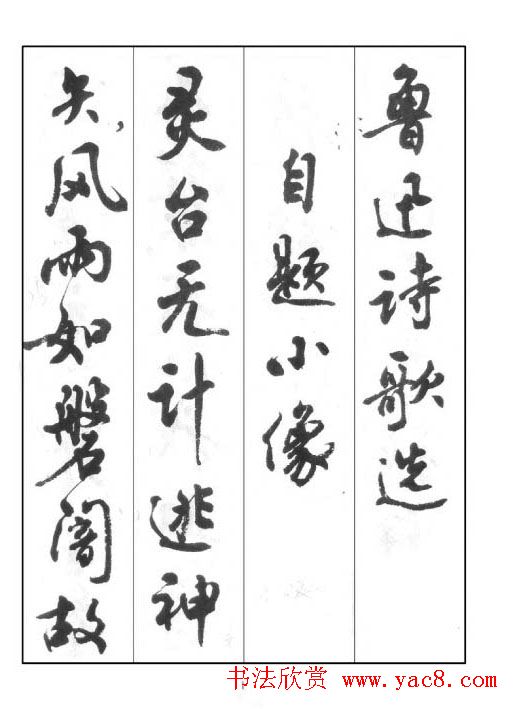 鲁迅诗歌选
自题小像
灵台无计逃神
矢,风雨如磐闇故
书法欣赏 www.yac8.com